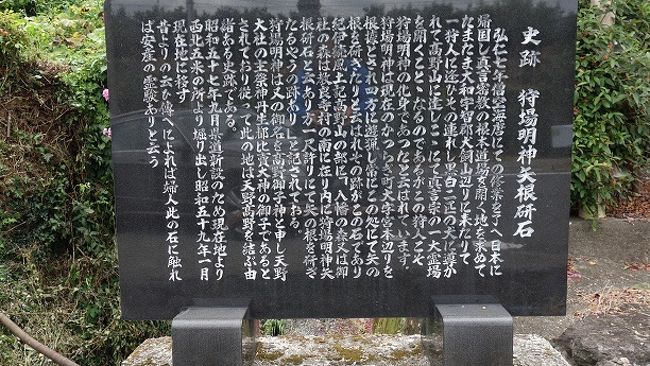 史跡 狩場明神矢根研石
弘仁七年僧空海唐にての修業を了へ日本に
帰国し真言密教の根本道場を開く地を求めて
たまたま大和宇智郡犬飼山辺りに来たりて
一狩人に逢ひその連れし黒白二匹の犬に導か
れて高野山に達しここにて真言宗の一大霊場
を開くこととなるのであるがこの狩人こそ
狩場明神の化身であったと云はれています。
狩場明神は現在のかつらぎ町大字宮本辺りを
根拠とされ四方に遊猟し常にこの処にて矢の
根を研ぎたりと云はれその跡がこの石であり
紀伊続風土記高野山の部に「八幡の叢矢は御
社の森は教良寺村の南に在り内に狩場明神矢
根研石と云あり方一尺許りにて矢の根を研ぎ
たるやうの跡あり」と記されておる。
狩場明神は又の御名を高野御子神と申し天野
大社の主祭神丹生都比賣大神の御子であると
されており従って此の地は天野高野を結ぶ由
緒ある史跡である。
昭和五十七年九月県道新設のため現在地より
西北五米の所より堀り出し昭和五十九年一月
現在地に移す
昔よりの云ひ傳へによれば婦人此の石に触れ
ば安産の霊験ありと云う